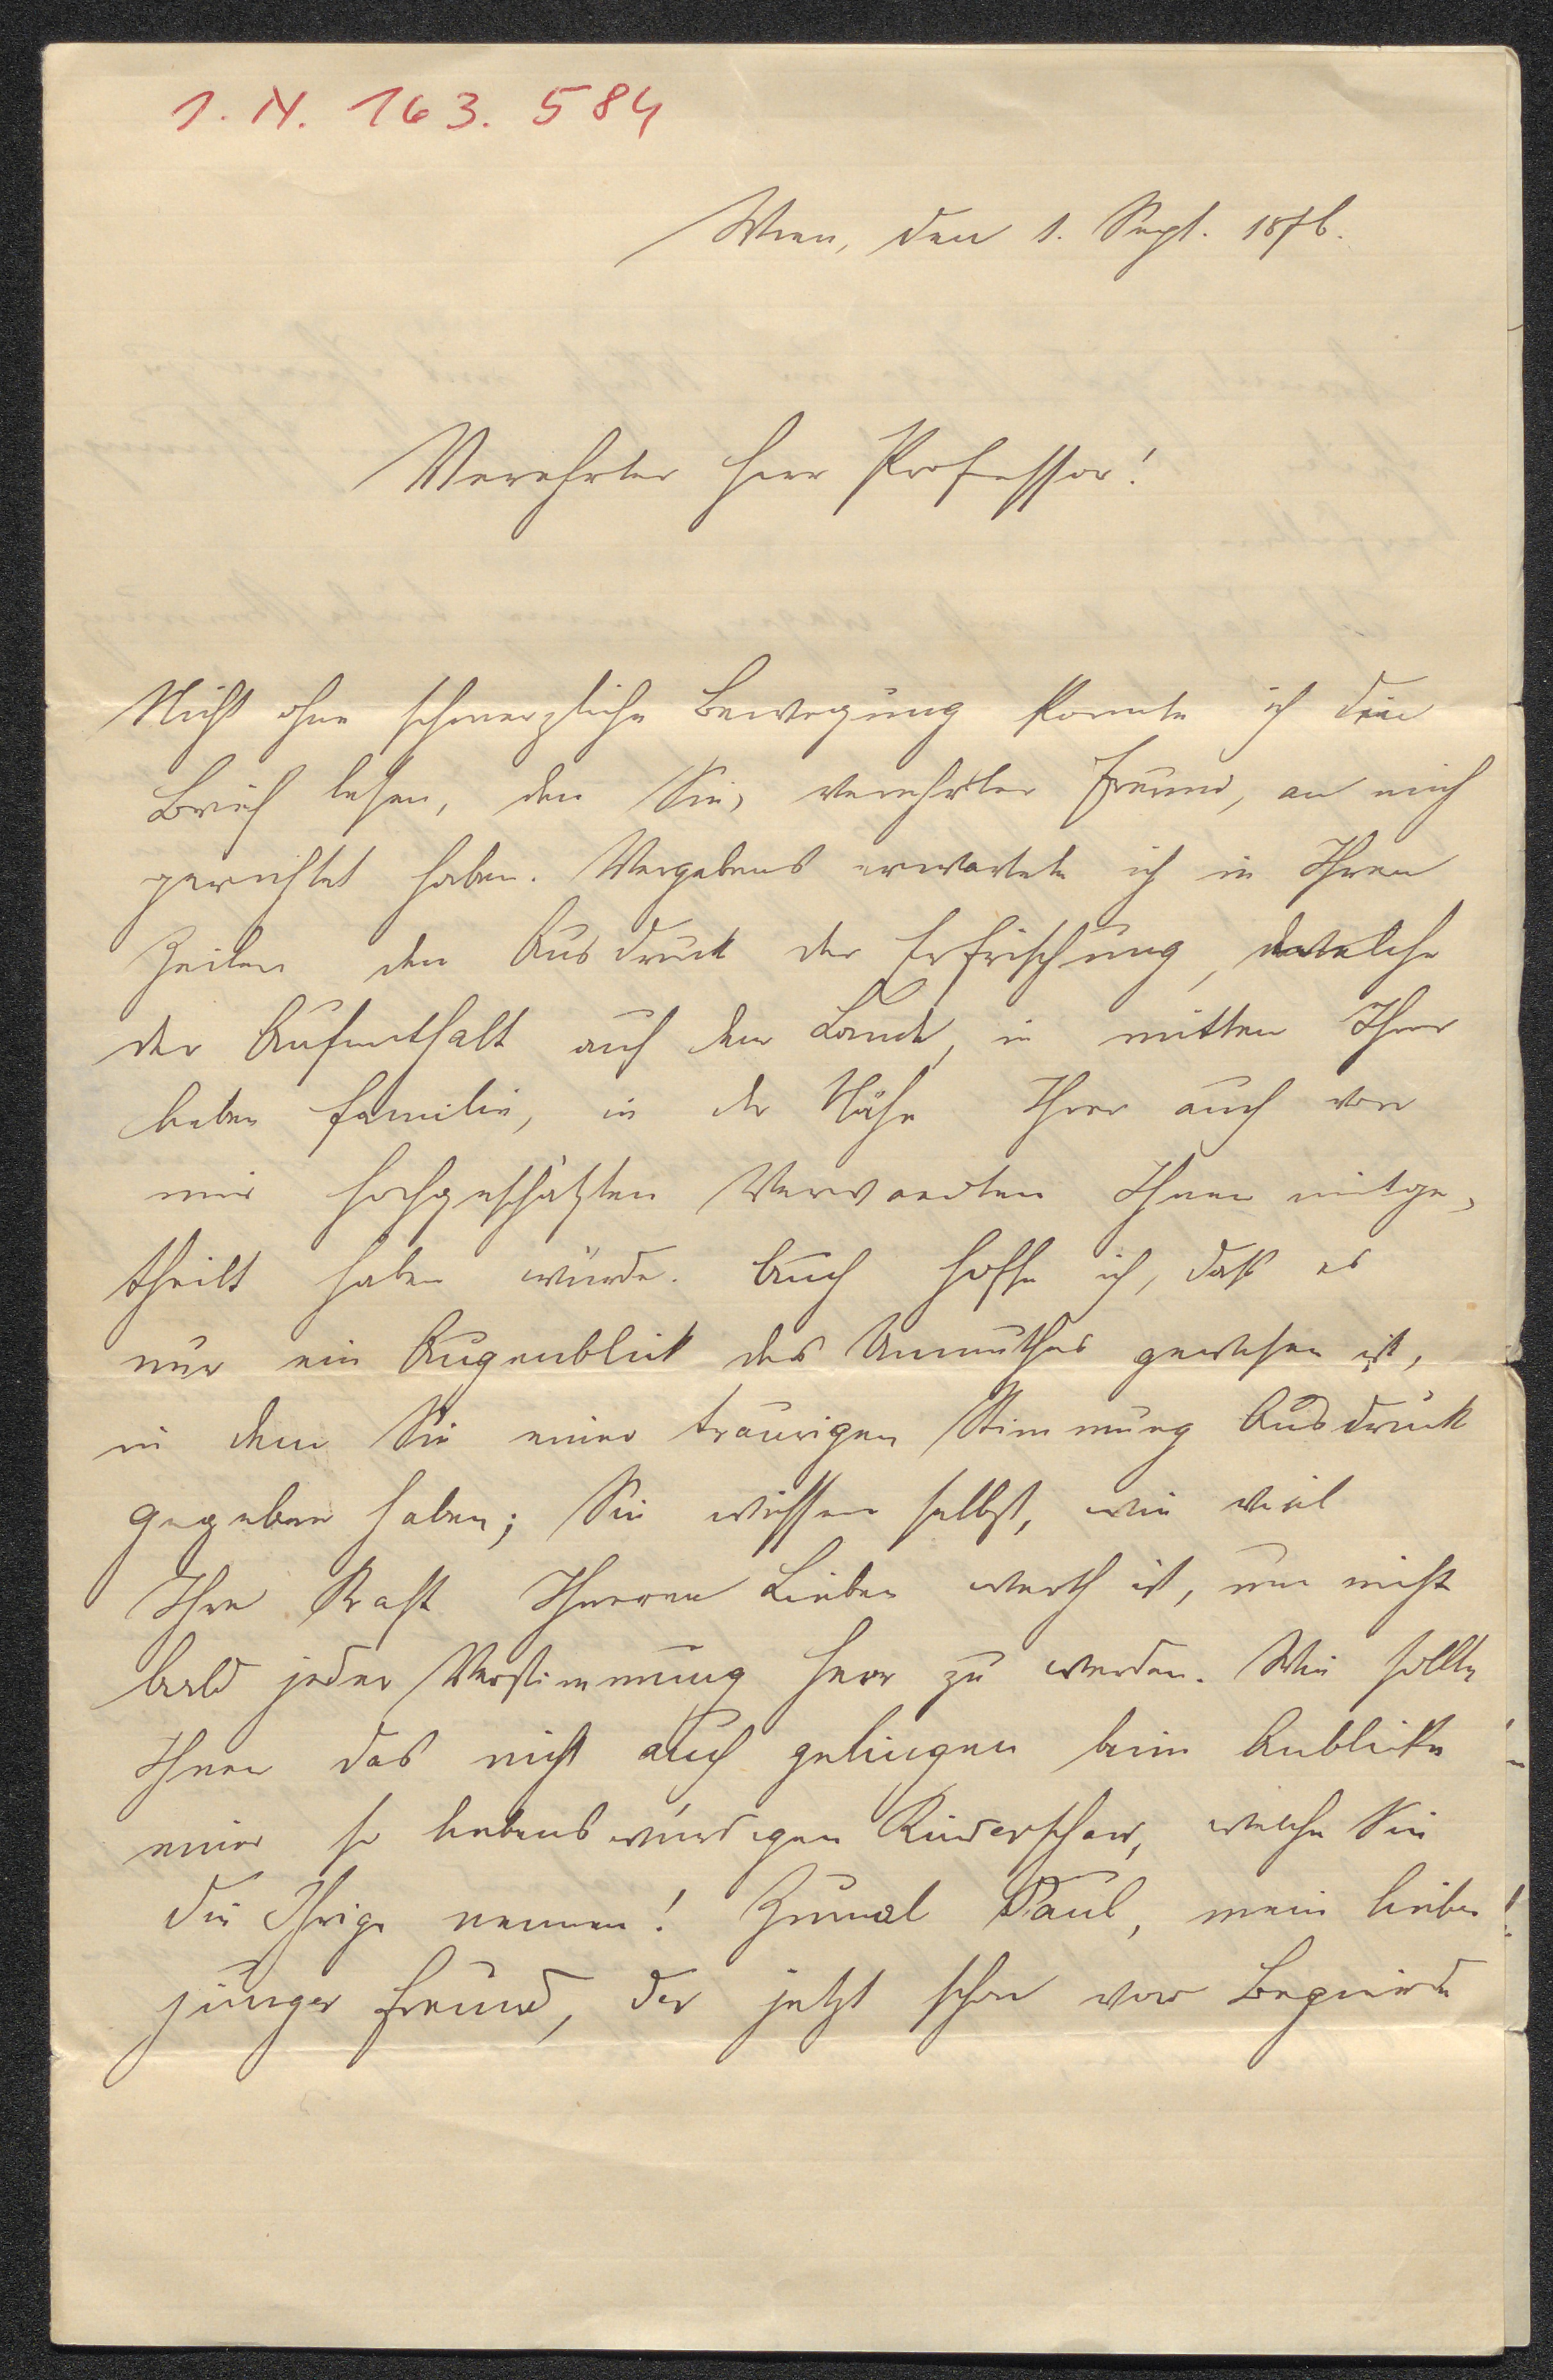 I. N. 163. 584
Wien, den 1. Sept. 1876.
Verehrter Herr Professor!
Nicht ohne schmerzliche Bewegung konnte ich den
Brief lesen, den Sie, verehrter Freund, an mich
gerichtet haben. Vergebens erwartete ich in Ihren
Zeilen den Ausdruck der Erfrischung, welche
der Aufenthalt auf dem Lande, in mitten Ihrer
lieben Familie, in der Nähe Ihrer auch von
mir hochgeschätzten Verwandten Ihnen mitge-
theilt haben würde. Auch hoffe ich, daß es
nur ein Augenblick des Unmuthes gewesen ist,
in dem Sie einer traurigen Stimmung Ausdruck
gegeben haben; Sie wissen selbst, wie viel
Ihre Kraft Ihren Lieben werth ist, um nicht
bald jeder Verstimmung Herr zu werden. Wie sollte
Ihnen das nicht auch gelingen beim Anblicke
einer so liebenswürdigen Kinderschar, welche Sie
die Ihrige nennen! Zumal Paul, mein lieber
junger Freund, der jetzt schon vor Begierde